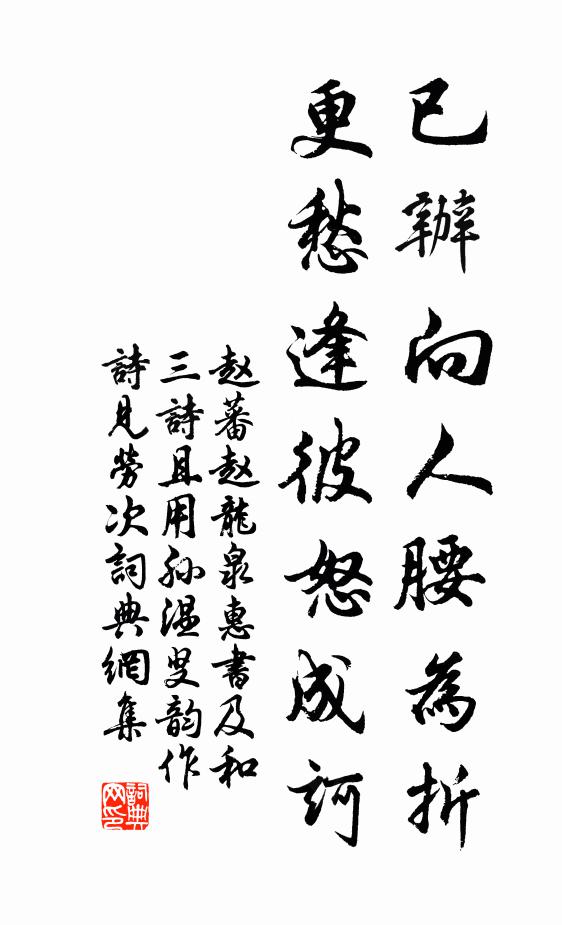 已辦向人腰為折
更愁逢彼怒成訶
赵蕃赵龍泉惠書及和
三詩且用孙温叟韵作
詩見勞次詞典網集
詞典网印